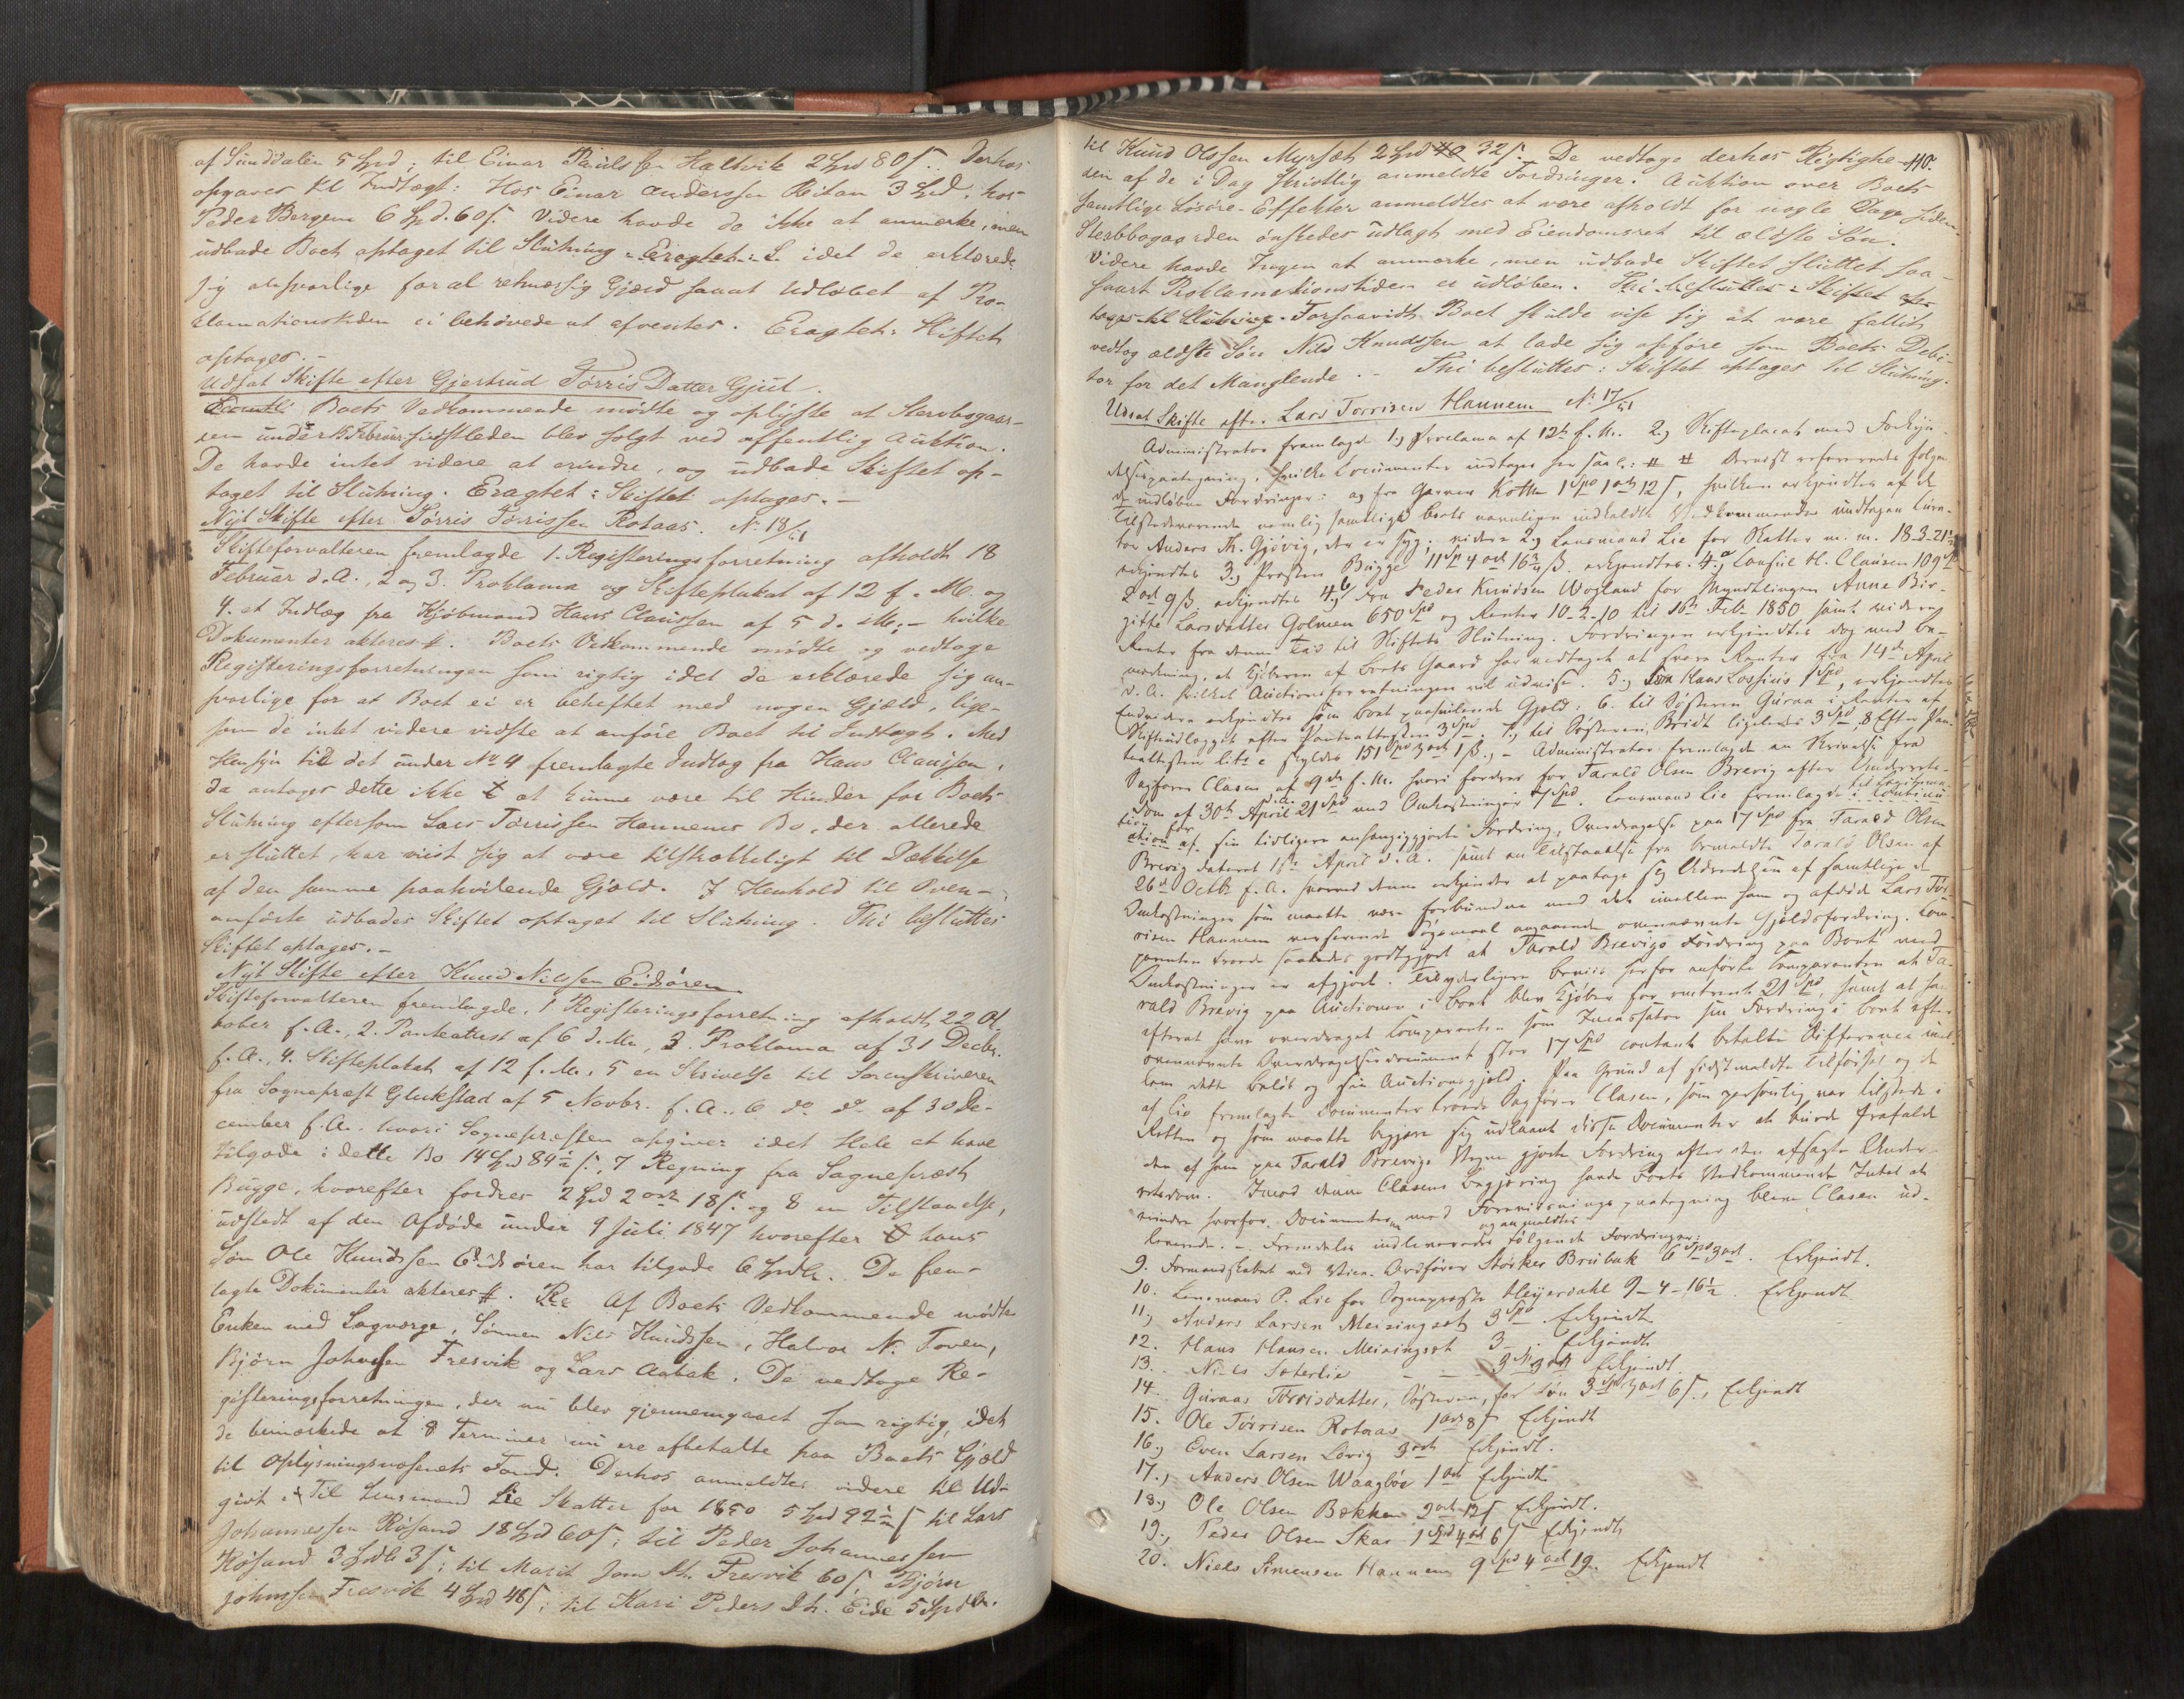 af Sunddalen 5 Spd; til Einar Pauls sen Haltvik 2 Spd 80 s. Derhos
opgaves til Indtægt: Hos Einar Anderssen Reitan 3 Spd. hos
Peder Bergem 6 Spd. 60 s. Videre havde da ikke at anmærke, men
udbade Boet optaget til Slutning - Eragtet: S. idet de erklærede
sig ansvarlige for al retmæssig Gjæld saaat Udløbet af Pro-
klamationstiden ei behøvede at afventes. Eragtet: Skiftet
optages. -
Udsat Skifte efter Gjertrud Tørris Datter Gjul.
Boets Vedkommende mødte og oplyste at Stervbogaar-
den under 15 Februar sidstleden blev solgt ved offentlig Auktion.
De havde intet videre at erindre, og udbade Skiftet op-
taget til Slutning. Eragtet: Skiftet optages. -
Nyt Skifte efter Tørris Tørrissen Rotaas. No 18/51
Skifteforvalteren fremlagde 1. Registeringsforretning afholdt 18
Februar d. A., 2 og 3. Proklama og Skifteplakat af 12 f. M. og
4. et Indlæg fra Kjøbmand Hans Claussen af 5 d. M.; - hvilke
Dokumenter akteres #. Boets Vedkommende mødte og vedtoge
Registeringsforretningen som rigtig idet de erklærede sig an-
svarlige for at Boet ei er beheftet med nogen Gjæld, lige-
som de intet videre vidste at anføre Boet til Indtægt. Med
Hensyn til det under No 4 fremlagte Indlæg fra Hans Claussen,
da antages dette ikke at kunne være til Hinder for Boets
Slutning eftersom Lars Tørrissen Hannems Bo, der allerede
er sluttet, har viist sig at være tilstrækkeligt til Dækkelse
af den samme paahvilende Gjæld. I Henhold til Oven-
anførte udbades Skiftet optaget til Slutning. Thi besluttes
Skiftet optages. -
Nyt Skifte efter Knud Nilssen Eidsøren
Skifteforvalteren fremlagde, 1 Registeringsforretning afholdt 22 Ok-
tober f. A., 2. Panteattest af 6 d. M., 3. Proklama af 31 Decbr.
f. A., 4. Skifteplakat af 12 f. M., 5 en Skrivelse til Sorenskriveren
fra Sogneprest Glukstad af 5 Novbr. f. A., 6 do do af 30 De-
cember f. A. hvori Sognepresten opgiver idet Hele at have
tilgode i dette Bo 14 Spd 84½ s., 7 Regning fra Sogneprest
Bugge, hvorefter fordres 2 Spd 2 ort 18 s. og 8 en Tilstaaelse,
udstedt af den Afdøde under 9 Juli 1847 hvorefter hans
Søn Ole Knudssen Eidsøren har tilgode 6 Spdlr. De frem-
lagte Dokumenter akteres #. Af Boets Vedkommende mødte
Enken med Lagværge, Sønnen Nils Knudssen, Halvor N. Toven,
Bjørn Johnsen Fresvik og Lars Aabak. De vedtoge Re-
gisteringsforretningen, der nu blev gjennemgaaet som rigtig, idet
de bemærkede at 8 Terminer nu ere afbetalte paa Boets Gjæld
til Oplysningsvæsenets Fond. Derhos anmeldtes videre til Ud-
givt: Til Lensmand Lie Skatter for 1850 5 Spd 92½ s til Lars
Johannessen Røsand 18 Spd 60 s; til Peder Johannessen
Røsand 3 Spdlr 3 s; til Marit Fresvik 60 s, Bjørn
Johnsen Fresvik 4 Spd 48 s; til Kari Peders Dtr. Eide 5 Spdlr.
til Knud Olssen Myrsæt 2 Spd 32 s. De vedtoge derhos Rigtighe- 110.
den af de i Dag skriftlig anmeldte Fordringer. Auktion over Boets
samtlige Løsøre-Effekter anmeldtes at være afholdt for nogle Dage siden.
Sterbbogaarden ønskedes udlagt med Eiendomsret til ældste Søn.
Videre havde Ingen at anmærke, men udbade Skiftet sluttet saa-
snart Proklamationstiden er udløben. Thi besluttes: Skiftet op-
tages til Slutning. Forsaavidt Boet skulde vise sig at være fallit
vedtog ældste Søn Nils Knudssen at lade sig opføre som Boets Debi-
tor for det Manglende. - Thi besluttes: Skiftet optages til Slutning.
Udsat Skifte efter Lars Torrisen Hannem No 17/51
Administrator fremlagde 1.) Proclama af 12te f. M. 2.) Skifteplacat med Forkyn-
delsespaategning, hvilke Documenter indtages her saal.: # # Dernæst refereredes følgen-
de indløbne Fordringer: a) fra Garver Kotte 1 Spd 1 ort 12 s, hvilken erkjendtes af de
Tilstedeværende nemlig samtlige boets navnligen indkaldte Vedkommende undtagen Cura-
tor Anders Th. Gjøvig, der er syg; videre 2.) Lensmand Lie for Skatter m. m. 18-3-21½
erkjendtes 3.) Presten Bugge 11 Spd 4 ort 16¾ ß. erkjendtes. 4.a) Consul H. Clausen 109 Spd
2 ort 9 ß, erkjendtes 4.b) Fra Peder Knudsen Wogland for Myndtlingen Anne Bir-
gitte Larsdatter Golmen 650 Spd og Renter 10-2-10 til 16de Feb. 1850 samt videre
Renter fra denne Tid til Skiftets Slutning. Fordringen erkjendtes dog med be-
mærkning, at Kjøberen af boets Gaard har vedtaget at svare Renter fra 14de April
d. A. hvilket Auctionsforretningen vil udvise. 5.) Hans Lossius 1 Spd, erkjendtes
Endvidere erkjendtes som boet paahvilende Gjæld: 6. til Søsteren Guraa i Renter af
Skifteudlægget efter Panteattesten 3 Spd. 7.) til Søsteren Bridt ligeledes 3 Spd, 8 Efter Pan-
teattesten litr. c skyldes 151 Spd 3 ort 1 ß. - Administrator fremlagde en Skrivelse fra
Sagfører Clasen af 9de f. M. hvori fordres for Tarald Olsen Brevig efter Underrets-
dom af 30te April 21 Spd med Omkostninger 7 Spd. Lensmand Lie fremlagde i
af sin tidligere anhængiggjorte Fordring, Overdragelse paa 17 Spd fra Tarald Olsen
Brevig dateret 1ste April d. A. samt en Tilstaaelse fra bemeldte Tarald Olsen af
26de Octb. f. A. hvorved denne erkjender at paatage sig Udredelsen af samtlige de
Omkostninger som maatte være forbundne med det imellem ham og afdøde Lars Tør-
risen Hannem verserende Søgsmaal angaaende ovennævnte Gjældsfordring. Com-
parenten troede saaledes godtgjort at Tarald Brevigs Fordring paa Boet med
Omkostninger er afgjort. Til yderligere beviis herfor anførte Comparenten at Ta-
rald Brevig paa Auctionen i boet blev Kjøber for omtrent 21 Spd, samt at han
efterat have overdraget Comparenten som Incassator sin Fordring i boet efter
ovennævnte Overdragelsesdocument stor 17 Spd contant betalte Differencen imel-
lem dette beløb og sin Auctionsgjæld. Paa Grund af sidstmeldte Tilførsel og de
af Lie fremlagte Documenter troede Sagfører Clasen, som personlig var tilstede i
Retten og som maatte begjære sig udlaant disse Documenter at burde frafalde
den af ham paa Tarald Brevigs Vegne gjorte Fordring efter den afsagte Under-
retsdom. Imod denne Clasens begjæring havde Boets Vedkommende Intet at
erindre hvorfor Documenterne med Foreviisningspaategning bleve Clasen ud-
leverede. - Fremdeles indleveredes og anmeldtes følgende Fordringer:
9. Formandskabet ved Vice-Ordfører Storker Brubak 6 Spd 3 ort. Erkjendt.
10. Lensmand P. Lie for Sogneprest Heyerdahl 9-4-16½. Erkjendt
11.) Anders Larsen Meisingset 3 Spd. Erkjendt
12. Hans Hansen Meisingset 3 - . Erkjendt
13. Niels Sæterlie - - - 3 Spd 3 ort Erkjendt.
14. Guraas Torrisdatter, Søsteren, for Løn 3 Spd 3 ort 6 s., Erkjendt
15. Ole Tørrisen Rotaas 1 ort 8 s Erkjendt
16.) Even Larsen Lervig 3 ort Erkjendt.
17.) Anders Olsen Waagbøe 1 ort Erkjendt
18.) Ole Olsen Bækken 2 ort 12 s Erkjendt.
19.) Peder Olsen Skar 1 Spd 4 ort 6 s Erkjendt
20. Niels Simensen Hannem 9 Spd 4 ort 19. Erkjendt